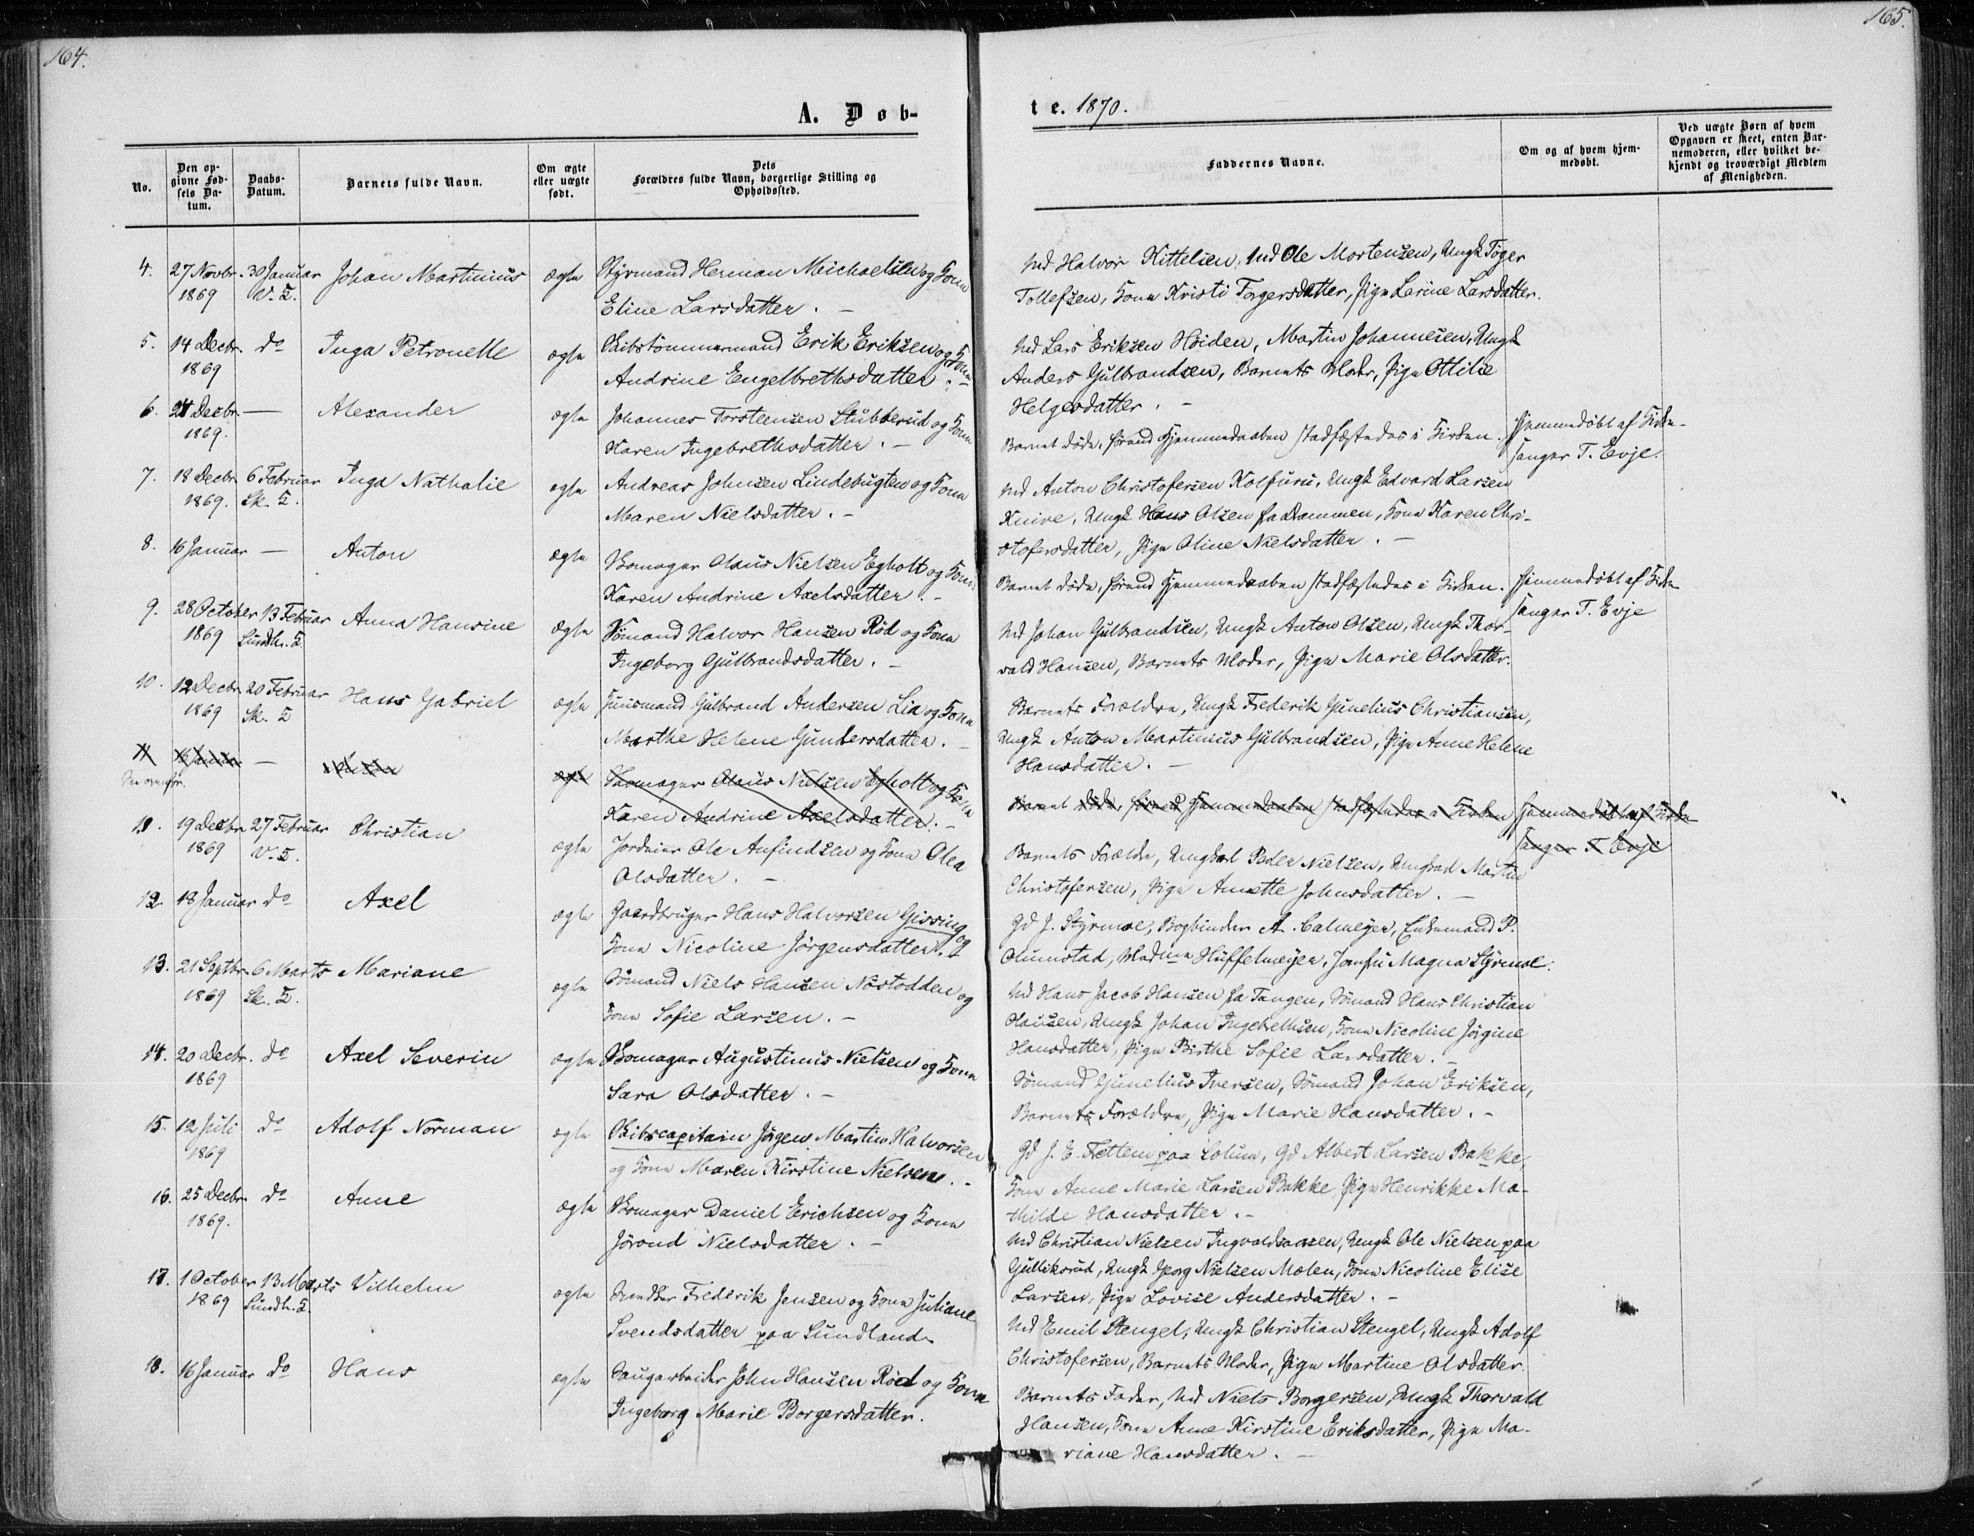 164.
165.
A. Døb-
te. 1870.
No.
Den op-
givne Fød-
sels Da-
tum.
Daabs-
Datum.
Barnets fulde Navn.
Om ægte
eller uægte
født.
Dets
Forældres fulde Navn, borgerlige Stilling og
Opholdssted.
Faddernes Navne.
Om og af hvem hjem-
medøbt.
Ved uægte Børn af hvem
Opgaven er skeet, enten Bar-
nemoderen, eller hvilket be-
kjendt og troværdigt Medlem
af Menigheden.
4. 27 Novbr. 30 Januar Johan Martinius ægte Styrmand Herman Michaelsen og Kona
1869 V. K.
Eline Larsdatter. -
Ud Halvor Kittelsen, Ud Ole Mortensen, Ungk Töger
Tollefsen, Kona Kristi Torgersdatter, Pige Larine Larsdatter.
5. 14 Decbr. do Inga Petronelle ægte Skibstömmermand Erik Eriksen og Kona
1869
Andrine Engelbrethsdatter. -
Ud Lars Eriksen Höiden, Martin Johannesen, Ungk
Anders Gulbrandsen, Barnets Moder, Pige Ottilie
Helgesdatter. -
6. 24 Decbr. — Alexander ægte Johannes Torsteensen Stubberud og Kona
1869.
Karen Ingebrethsdatter. -
Barnet döde, förend Hjemmedaaben stadfæstedes i Kirken.
Hjemmedöbt af Kirke-
sanger T. Evje.
7. 18 Decbr. 6 Februar Inga Nathalie ægte Andreas Johnsen Lindebugten og Kona
1869. Sk. K.
Maren Nielsdatter. -
Ud Anton Christofersen Kolfuru, Ungk Edvard Larsen
Knive, Ungk Hans Olsen fra Dammen, Kona Karen Chri-
stofersdatter, Pige Oline Nielsdatter. -
8. 16 Januar — Anton ægte Skomager Olaus Nielsen Egholt og Kona
Karen Andrine Axelsdatter. -
Barnet döde, förend Hjemmedaaben stadfæstedes i Kirken.
Hjemmedöbt af Kirke-
sanger T. Evje
9. 28 October 13 Februar Anna Hansine ægte Sömand Halvor Hansen Röd og Kona
1869 Sundh. K
Ingeborg Gulbrandsdatter. -
Ud Johan Gulbrandsen, Ungk Anton Olsen, Ungk Thor-
vald Hansen, Barnets Moder, Pige Marie Olsdatter.
10. 12 Decbr. 20 Februar Hans Gabriel ægte Huusmand Gulbrand Andersen Lia og Kona
1869 Sk. K
Marthe Helene Gundersdatter. -
Barnets Forældre, Ungk Frederik Gunelius Christiansen,
Ungk Anton Martinius Gulbrandsen, Pige Anne Helene
Hansdatter. -
11 16 Januar — Anton ægte Skomager Olaus Nielsen Egholt og Kona
Karen Andrine Axelsdatter. -
Barnet döde, förend Hjemmedaaben stadfæstedes i Kirken
Hjemmedöbt af Kirke-
sanger T. Evje
11. 19 Decbr. 27 Februar Christian ægte Jordeier Ole Anfindsen og Kona Olea
1869 V. K.
Olsdatter. -
Barnets Forældre, Ungkarl Peder Nielsen, Ungkarl Martin
Christofersen, Pige Annette Johnsdatter. -
12. 18 Januar do Axel ægte Gaardbruger Hans Halvorsen Gissing og
Kona Nicoline Jörgensdatter. -
Gd J. Styrmoe, Bogbinder A. Calmeyer, Enkemand P.
Olumstad, Madme Huffelmeyer, Jomfru Magna Styrmoe.
13. 21 Septbr. 6 Marts Mariane ægte Sömand Niels Hansen Nöstodden og
1869 Sk. K.
Kona Sofie Larsen. -
Ud Hans Jacob Hansen fra Tangen, Sömand Hans Christian
Hansen, Ungk Johan Ingebrethsen, Kona Nicoline Jörgine
Hansdatter, Pige Birthe Sofie Larsdatter. -
14. 20 Decbr. do Axel Severin ægte Skomager Augustinus Nielsen og Kona
1869
Sara Olsdatter. -
Sömand Gunelius Iversen, Sömand Johan Eriksen,
Barnets Forældre, Pige Marie Hansdatter. -
15. 12 Juli do Adolf Norman ægte Skibscapitain Jörgen Martin Halvorsen
1869
og Kona Maren Kirstine Nielsen. -
Gd J. E. Tettem paa Solum, Gd Albert Larsen Bakke,
Kona Anne Marie Larsen Bakke, Pige Henrikke Ma-
thilde Hansdatter. -
16. 25 Decbr. do Anne ægte Skomager Daniel Erichsen og Kona
1869.
Jörond Nielsdatter. -
Ud Christian Nielsen Ingvaldsaasen, Ungk Ole Nielsen paa
Gulliksrud, Ungk Georg Nielsen Mælen, Kona Nicoline Elise
Larsen, Pige Lovise Andersdatter. -
17. 1 October 13 Marts Vilhelm ægte Snedker Frederik Jensen og Kona Juliane
1869 Sundh. K.
Svendsdatter paa Sundland.
Ud Emil Stengel, Ungk Christian Stengel, Ungk Adolf
Christofersen, Barnets Moder, Pige Martine Olsdatter.
18. 16 Januar do Hans ægte Saugarbeider John Hansen Röd og Kona
Ingeborg Marie Borgersdatter.
Barnets Fader, Ud Niels Borgersen, Ungk Thorvald
Hansen, Kona Anne Kirstine Eriksdatter, Pige Ma-
riane Hansdatter. -